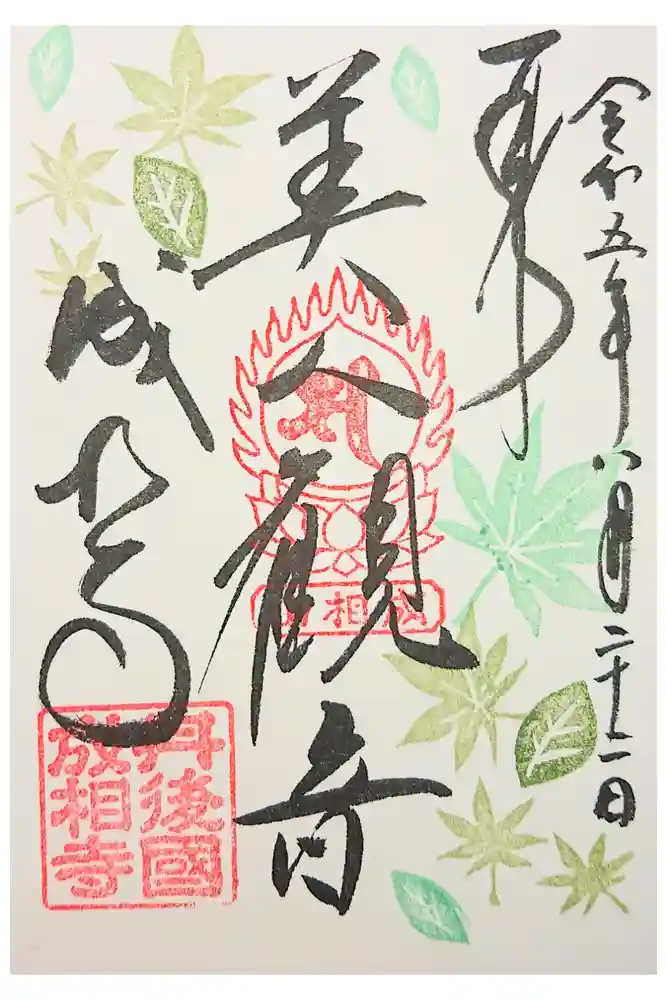 令和五年八月二十一日
奉拝
美人観音
成相寺
丹後國
成相寺